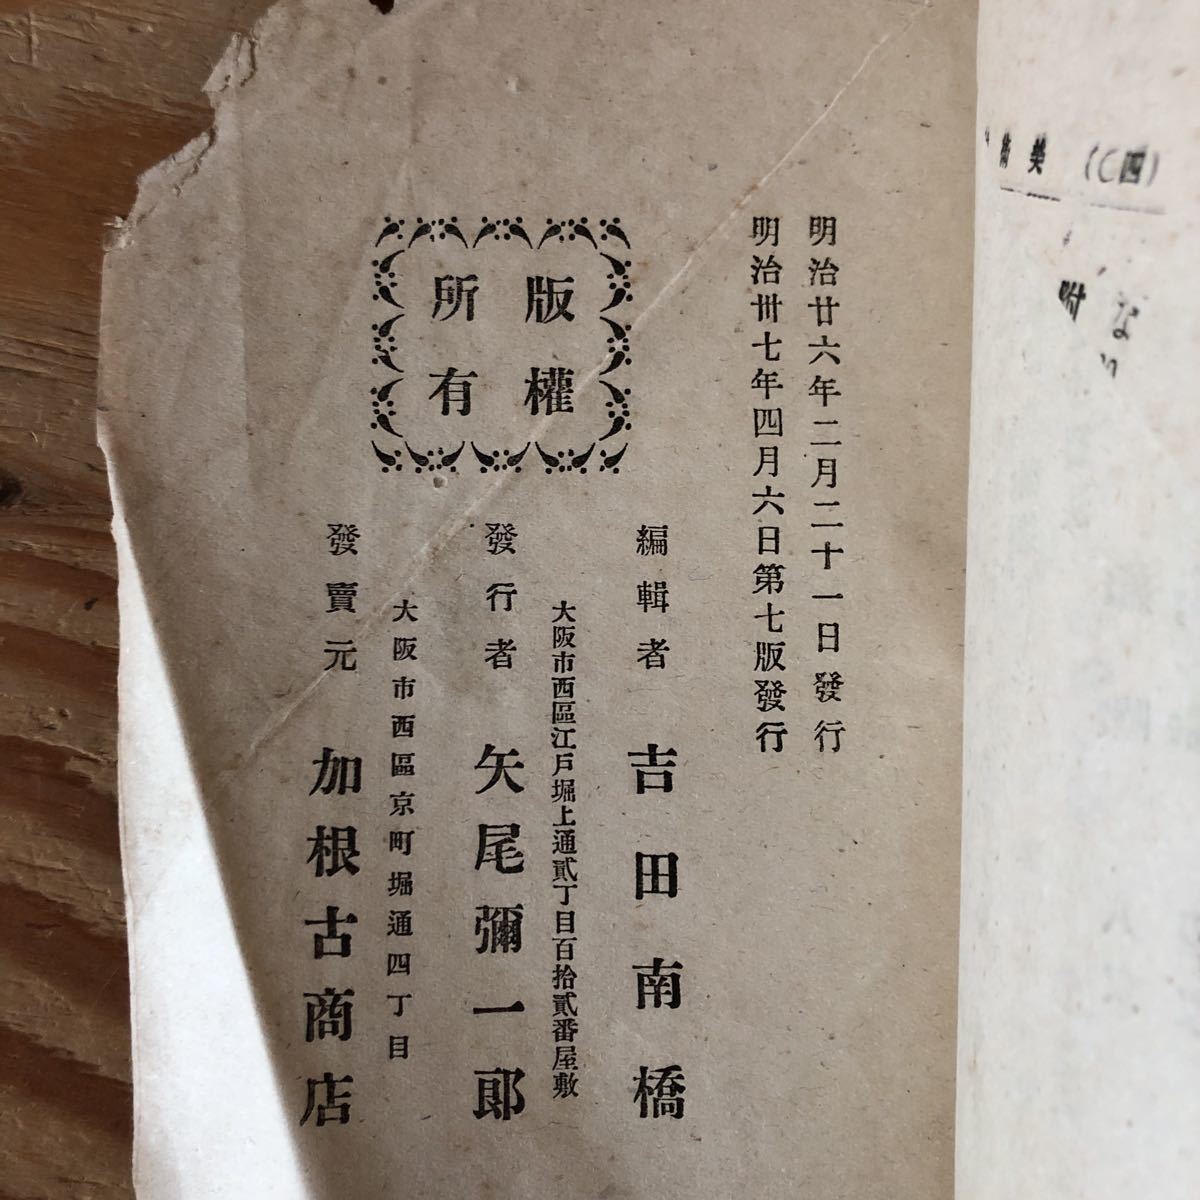 美術
(C四)
な
附
明治廿六年二月二十一日發行
明治卅七年四月六日第七版發行
版權
所有
編輯者 吉田南橋
大阪市西區江戸堀上通貳丁目百拾貳番屋敷
發行者 矢尾彌一郎
大阪市西區京町堀通四丁目
發賣元 加根古商店